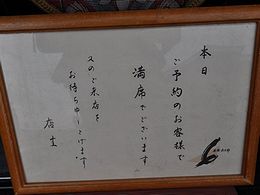 本日
ご予約のお客様で
満席でございます
又のご来店を
お待ち申し上げます
店主